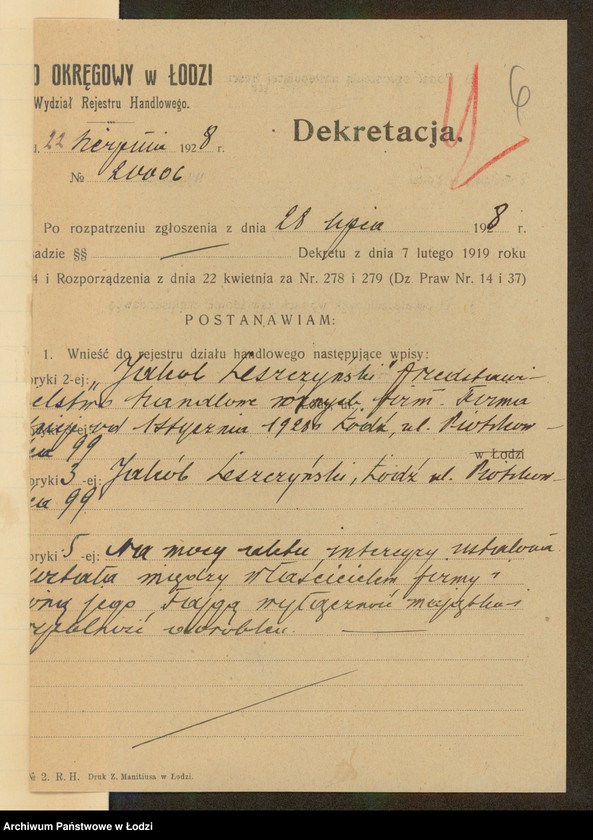 D OKRĘGOWY w ŁODZI
Wydział Rejestru Handlowego.
d. 22 sierpnia 1928 r.
№ 20006
6
Dekretacja.
Po rozpatrzeniu zgłoszenia z dnia 28 lipca 1928 r.
sadzie §§ Dekretu z dnia 7 lutego 1919 roku
4 i Rozporządzenia z dnia 22 kwietnia za Nr. 278 i 279 (Dz Praw Nr. 14 i 37)
POSTANAWIAM:
1. Wnieść do rejestru działu handlowego następujące wpisy:
bryki 2-ej: „Jakób Leszczyński" przedstawi-
elstwo handlowe różnych firm. Firma
istnieje od 1 stycznia 1928 r. Łódź, ul. Piotrkow-
ska 99
w Łodzi
bryki 3-ej: Jakób Leszczyński, Łódź ul. Piotrkow-
ska 99
bryki 5-ej: Na mocy aktu intercyzy ustalona
została między właścicielem firmy i
żoną jego Fajgą wyłączność majątku i
wspólność dorobku.
№ 2. R. H. Druk Z. Manitiusa w Łodzi.
Archiwum Państwowe w Łodzi